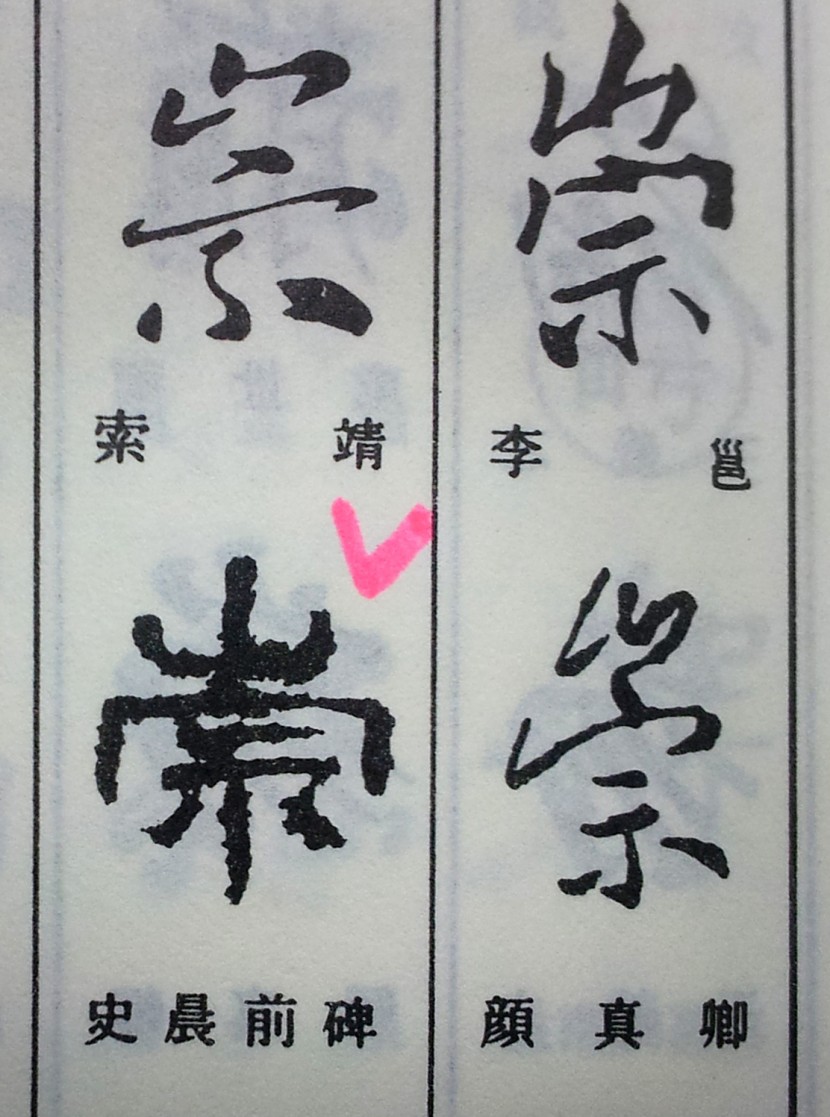 崇
李邕
崇
顔真卿
崇
索靖
崇
史晨前碑